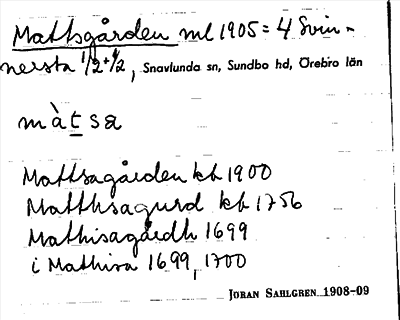 Mattsgården ml 1905 = 4 Svin-
nersta 1/2+1/2, Snavlunda sn, Sundbo hd, Örebro län
màtsa
Mattsagården kb 1900
Matthsagurd kb 1756
Mathisagårdh 1699
i Mathisa 1699, 1700
JÖRAN SAHLGREN 1908-09